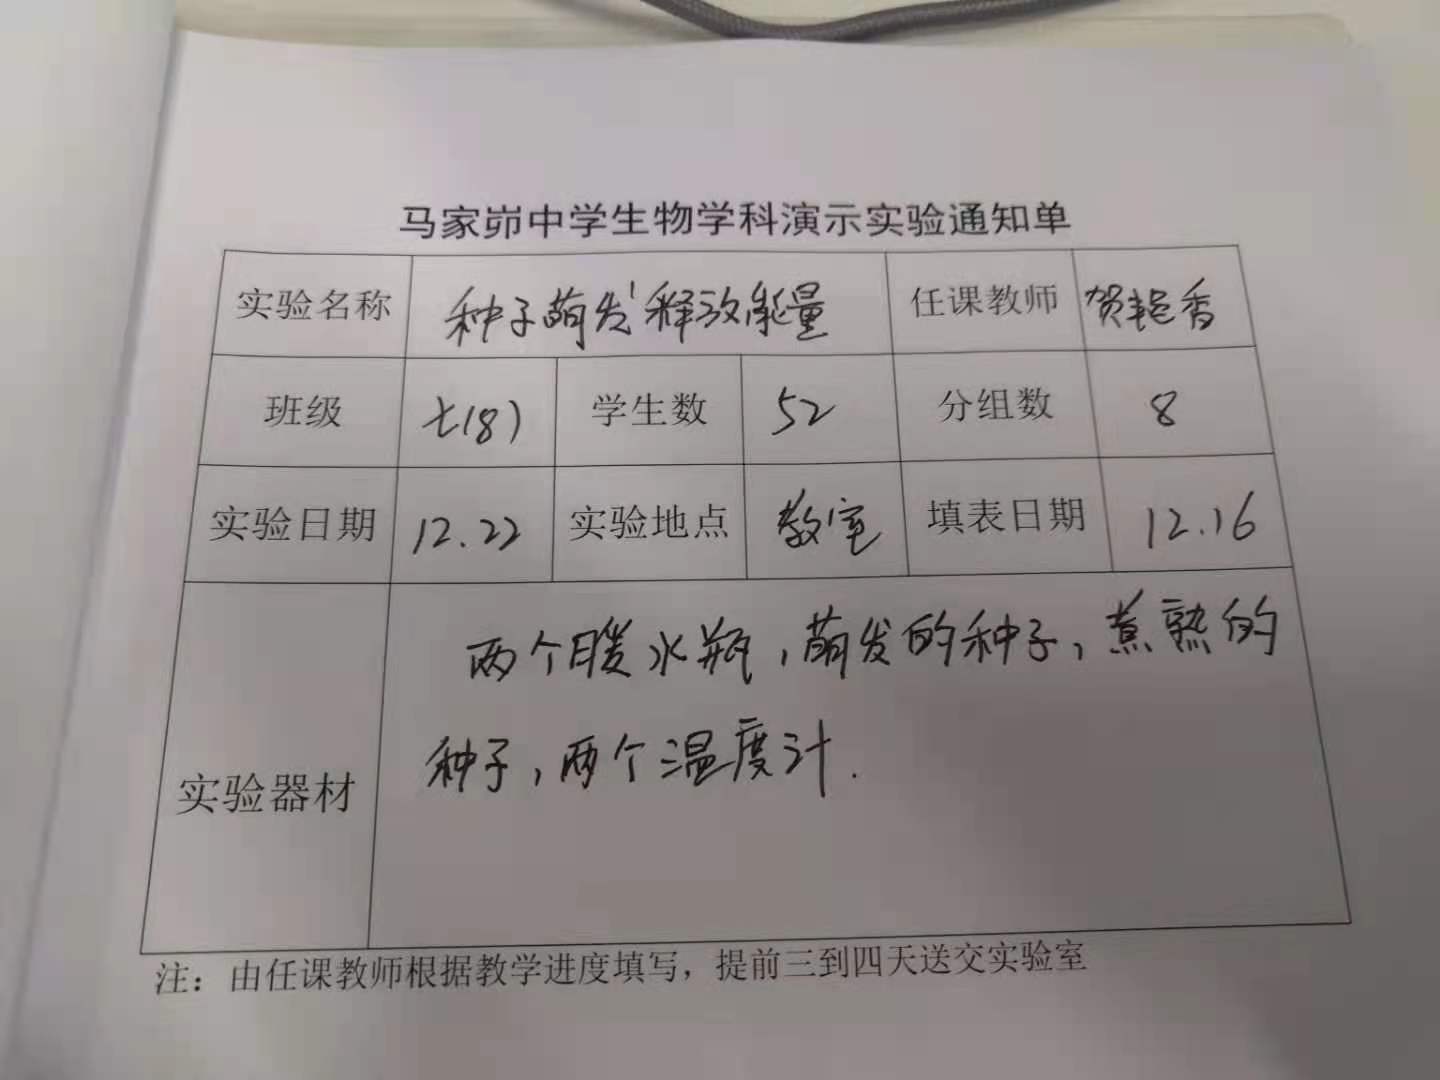 马家峁中学生物学科演示实验通知单
实验名称 种子萌发释放能量 任课教师 贺艳香
班级 七(8) 学生数 52 分组数 8
实验日期 12.22 实验地点 教室 填表日期 12.16
两个暖水瓶,萌发的种子,煮熟的
种子,两个温度计.
实验器材
注:由任课教师根据教学进度填写,提前三到四天送交实验室